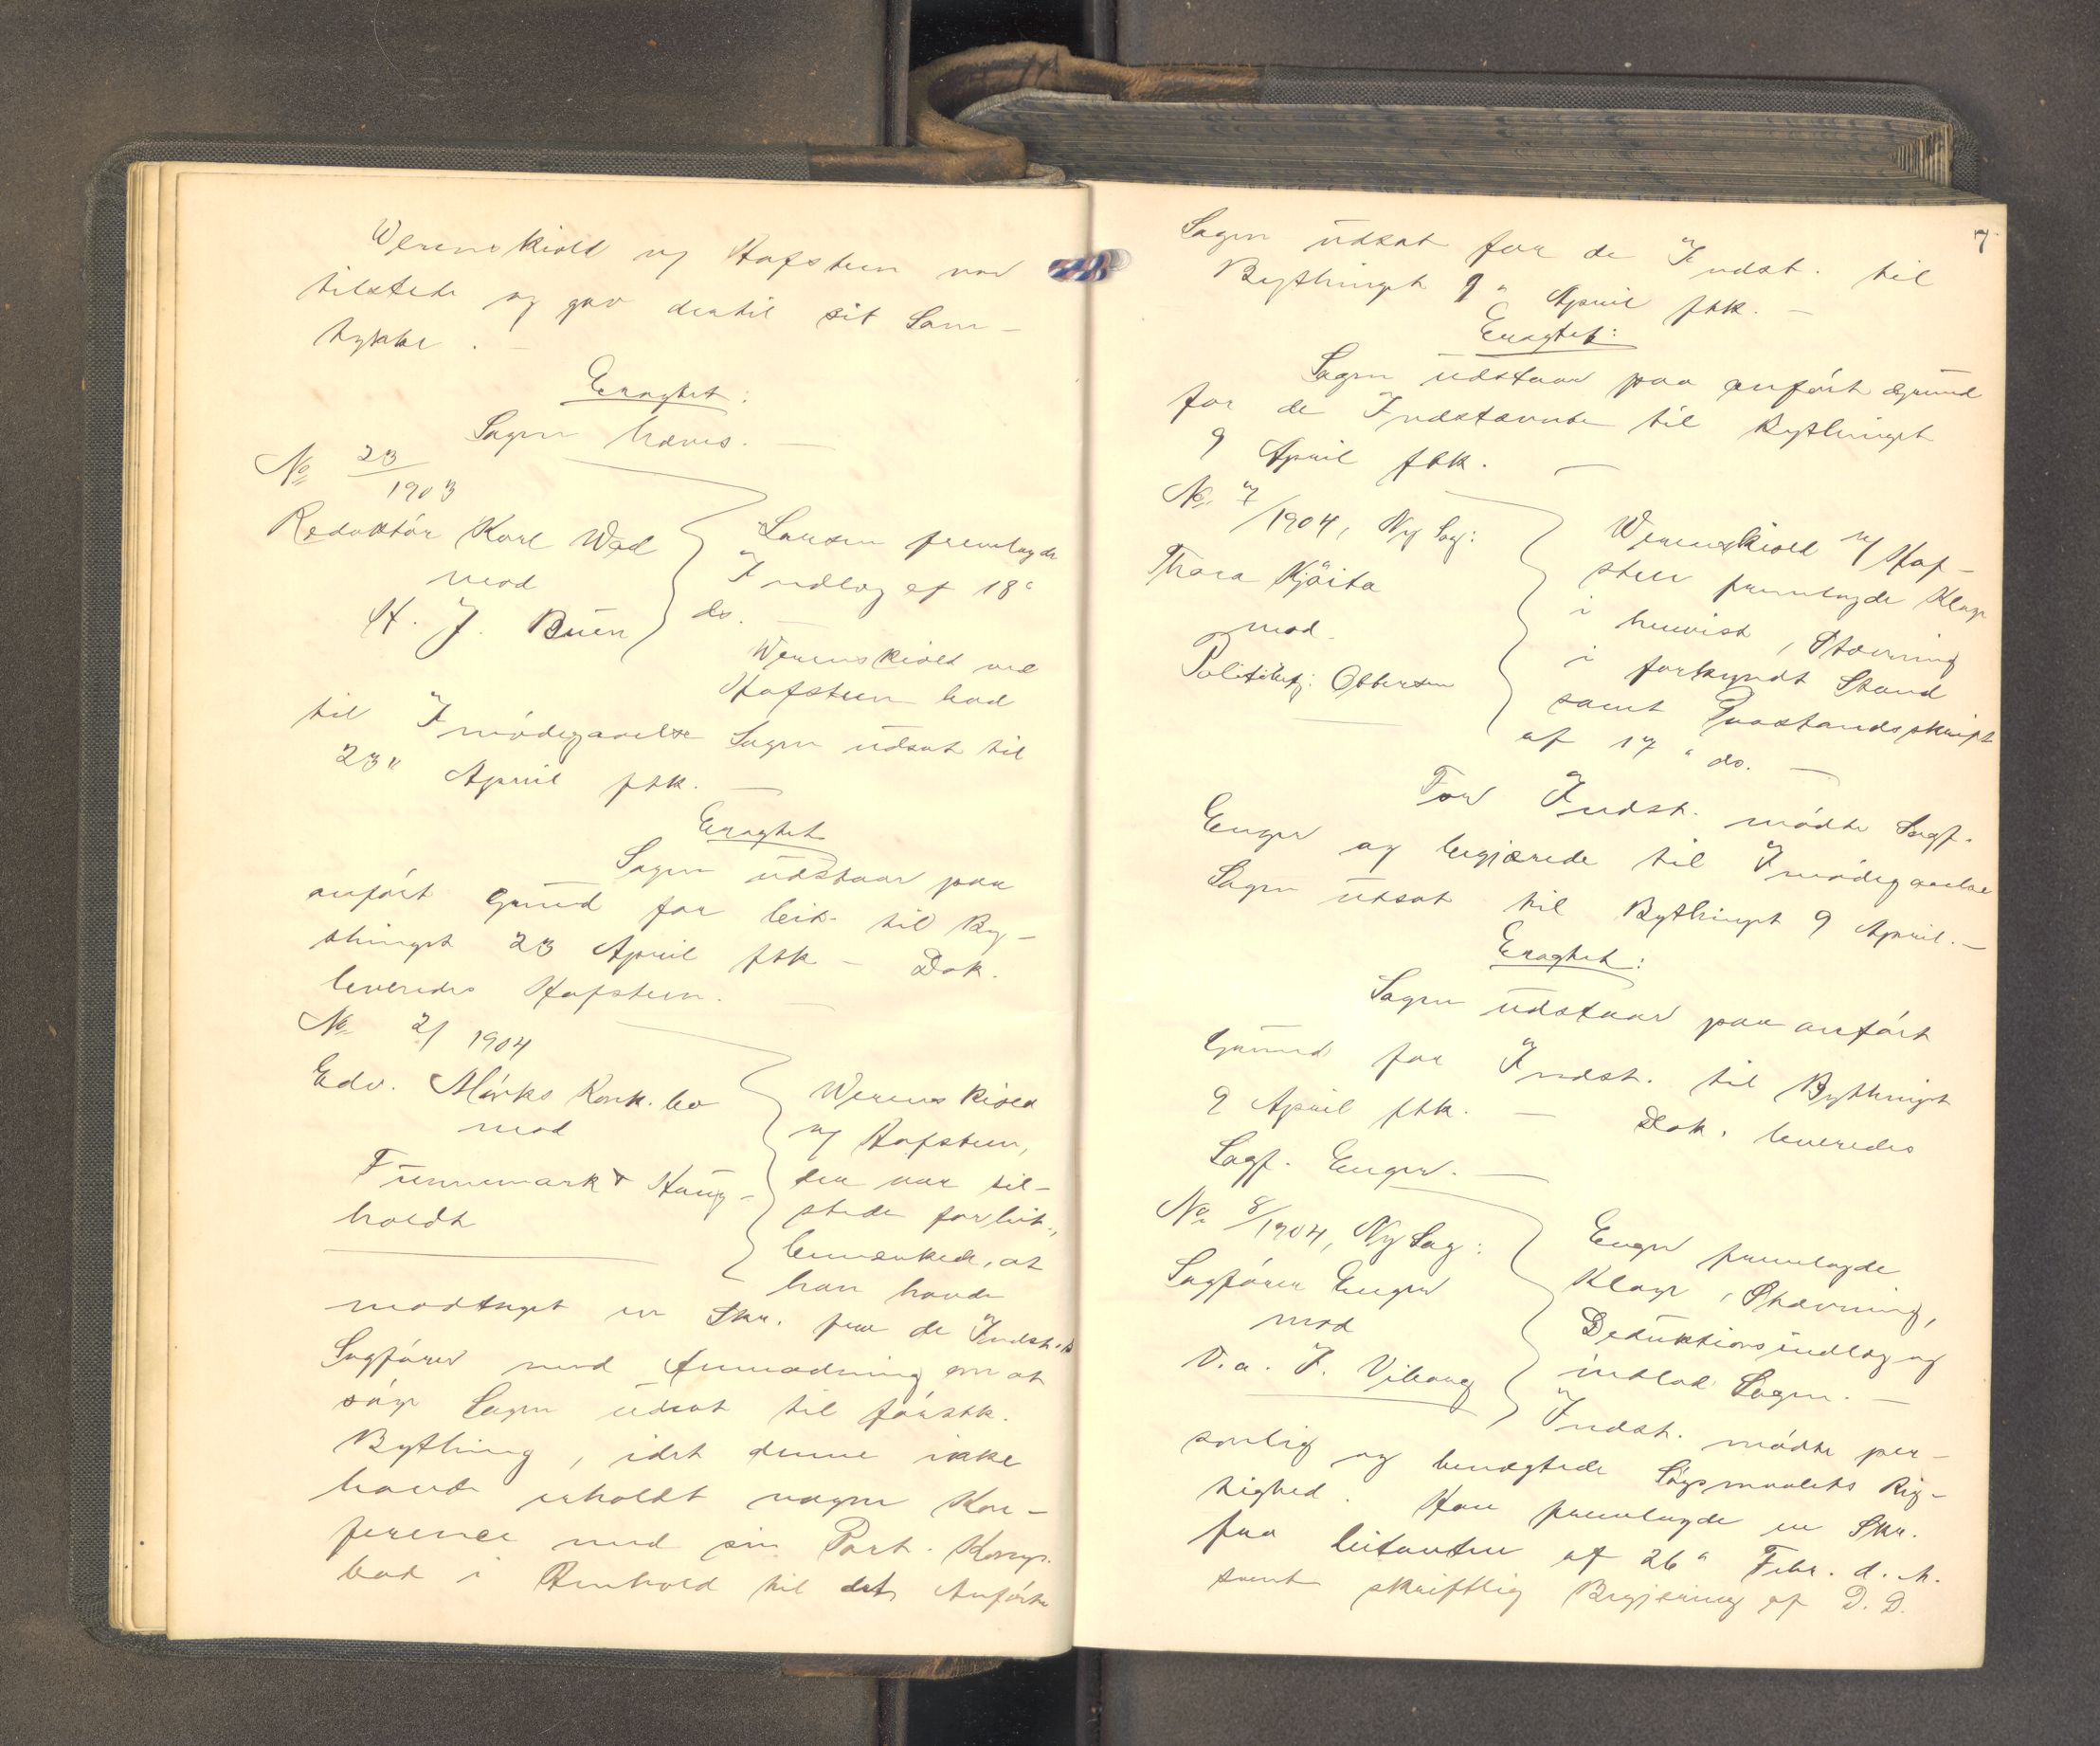 Werenskiold v/ Hofsteen var
tilstede og gav dertil sit Sam-
tykke. -
Eragtet:
Sagen hæves. -
No 23/1903
Redaktør Karl Wed
mod
H. J. Buen
Larsen fremlagde
Indlæg af 18"
ds. -
Werenskiold ved
Hofsteen bad
til Imødegaaelse Sagen udsat til
23" April fstk. -
Eragtet
Sagen udstaar paa
anført Grund for Cit. til By-
thinget 23 April fstk - Dok.
leveredes Hofsteen. -
No 2/1904
Edv. Mørks Konk.bo
mod
Funnemark & Haug-
holdt
Werenskiold
v/ Hofsteen,
der var til-
stede for Cit.,
bemærkede, at
han havde
modtaget en Skr. fra de Indst.s
Sagfører med Anmodning om at
søge Sagen udsat til førstk.
Bything, idet denne ikke
havde erholdt nogen Kon-
ference med sin Part. Komp.
bad i Henhold til det Anførte
7
Sagen udsat for de Indst. til
Bythinget 9" April fstk. -
Eragtet:
Sagen udstaar paa anført Grund
for de Indstævnte til Bythinget
9 April fstk. -
No. 7/1904, Ny Sag:
Thora Kjöita
mod
Politibetj: Obbersen
Werenskiold v/ Hof-
steen fremlagde Klage
i henvist, Stævning
i forkyndt Stand
samt Paastandsskrift
af 17" ds. -
For Indst. mødte Sagf.
Enger og begjærede til Imødegaaelse
Sagen udsat til Bythinget 9 April. -
Eragtet:
Sagen udstaar paa anført
Grund for Indst. til Bythinget
9 April fstk. - Dok. leveredes
Sagf. Enger. -
No 8/1904, Ny Sag:
Sagfører Enger
mod
V.a. J. Viborg
Enger fremlagde
Klage, Stævning,
Deduktionsindlæg og
indlod Sagen. -
Indst. mødte per-
sonlig og benægtede Søgsmaalets Rig-
tighed. Han fremlagde en Skr.
fra Citanten af 26" Febr. d. A.
samt skriftlig Begjæring af D. D.